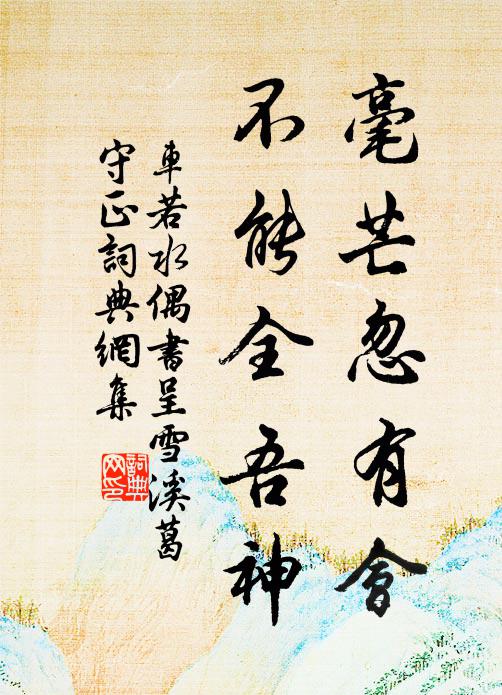 毫芒忽有會
不能全吾神
車若水偶書呈雪溪葛
守正詞典網集
詞典网印